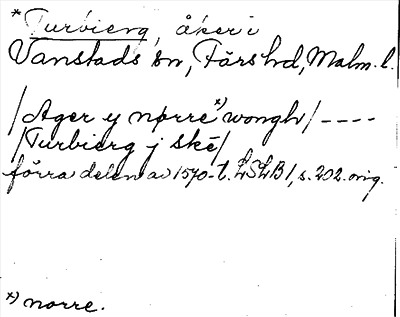 *Turbierg, åker i
Vanstads sn, Färs hd, Malm. l.
/Ager y nørre *) wongh/ ----
/Turbierg j skė/
förra delen av 1570-t. LSLB 1, s. 202. orig.
*) norre.